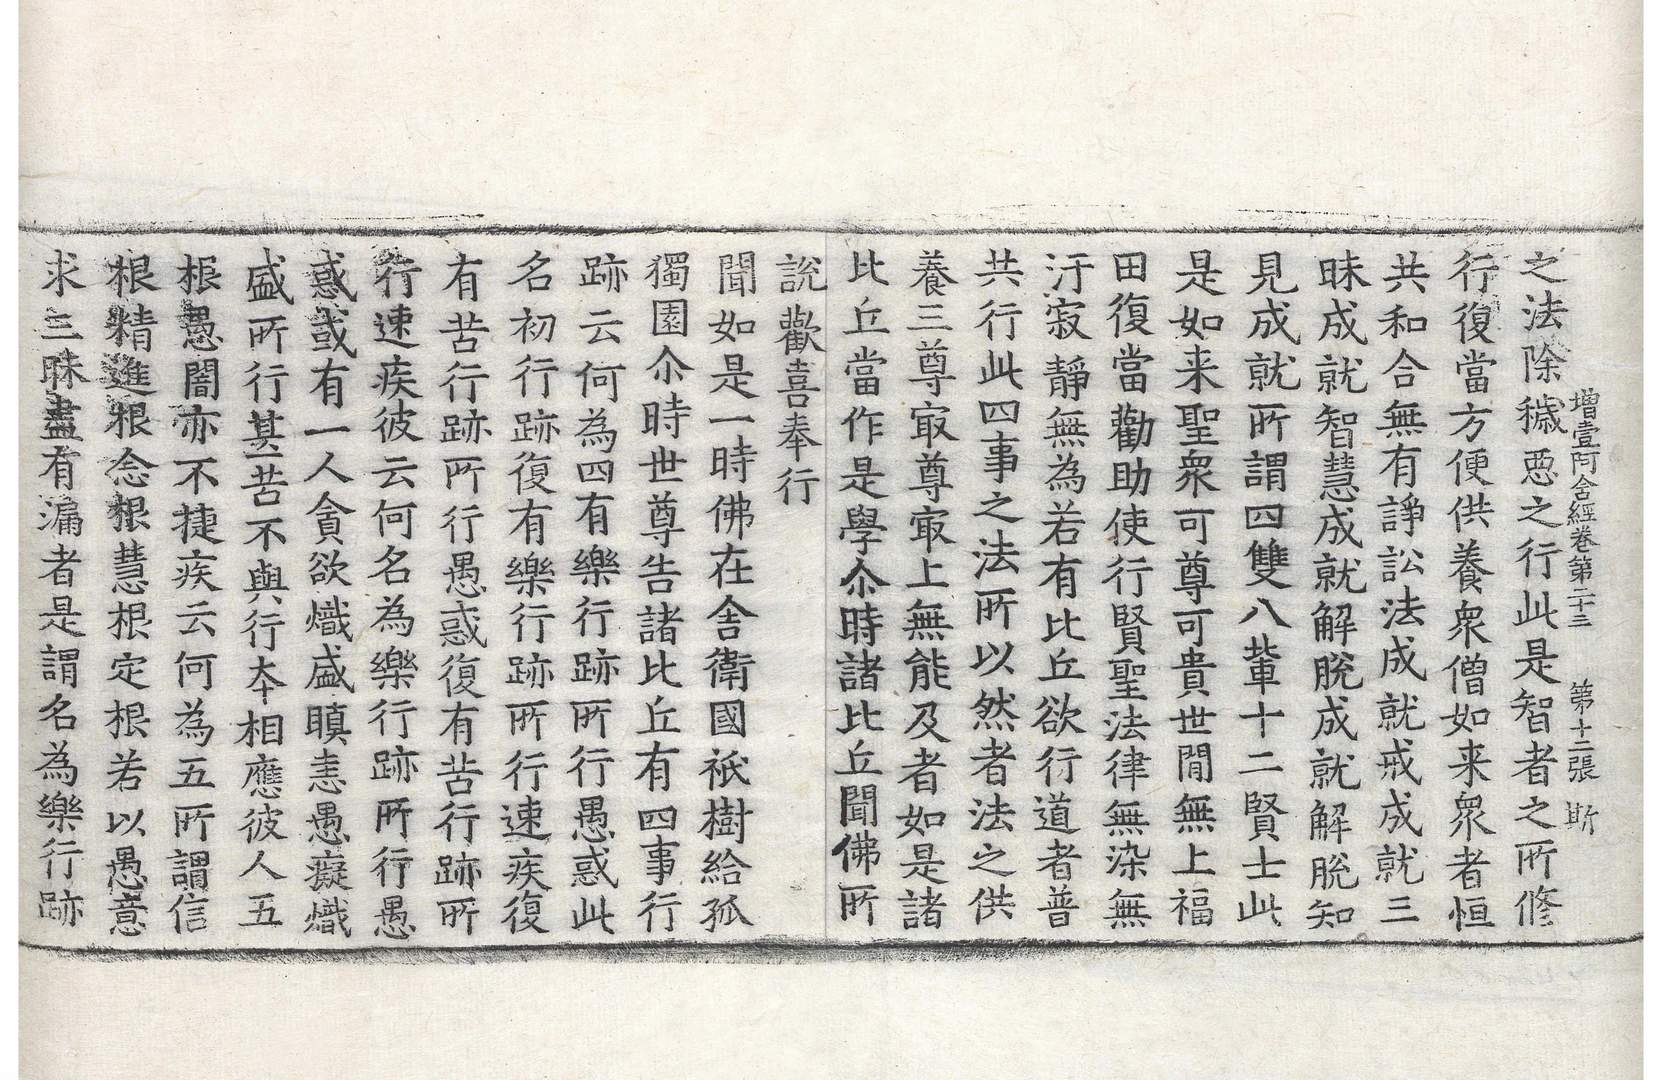 增壹阿含經卷第二十三 第十二張 斯
之法除穢惡之行此是智者之所修
行復當方便供養衆僧如来衆者恒
共和合無有諍訟法成就戒成就三
昧成就智慧成就解脫成就解脫知
見成就所謂四雙八輩十二賢士此
是如来聖衆可尊可貴世閒無上福
田復當勸助使行賢聖法律無染無
汙寂靜無為若有比丘欲行道者普
共行此四事之法所以然者法之供
養三尊㝡尊㝡上無能及者如是諸
比丘當作是學尒時諸比丘聞佛所
說歡喜奉行
聞如是一時佛在舍衛國祇樹給孤
獨園尒時世尊告諸比丘有四事行
跡云何為四有樂行跡所行愚惑此
名初行跡復有樂行跡所行速疾復
有苦行跡所行愚惑復有苦行跡所
行速疾彼云何名為樂行跡所行愚
惑或有一人貪欲熾盛瞋恚愚癡熾
盛所行甚苦不與行夲相應彼人五
根愚闇亦不捷疾云何為五所謂信
根精進根念根慧根定根若以愚意
求三昧盡有漏者是謂名為樂行跡